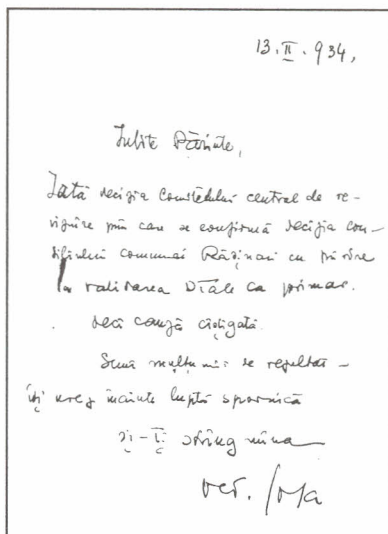 13.II.934,
Iubite Părinte,
Iată decizia Comitetului central de re-
vizuire prin care se confirmă decizia con-
siliului comunei Rășinari cu privire
la validarea D-Tale ca primar.
deci cauză câștigată.
Sunt mulțumit de rezultat –
îți urez înainte luptă spornică
și-Ți string mina